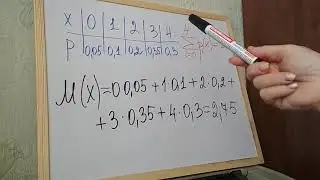 X 0 1 2 3 4
P 0,05 0,1 0,2 0,35 0,3
M(X)=0·0,05+1·0,1+2·0,2+
+3·0,35+4·0,3=2,75